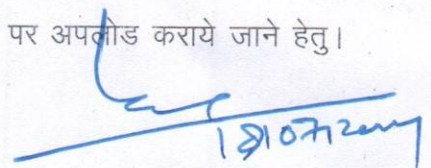 पर अपलोड कराये जाने हेतु।